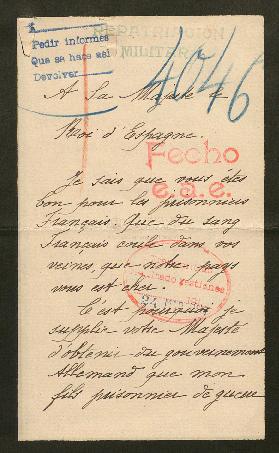 REPATRIACION
MILITAR
Pedir informes
Que se hace así
Devolver
4046
A Sa Majesté le
Roi d'Espagne.
Fecho
e.a.e.
Je sais que vous êtes
bon pour les prisonniers
Français. Que du sang
français coule dans vos
veines, que notre pays
vous est cher.
C'est pourquoi je
gestiones
supplie votre Majesté
d'obtenir du gouvernement
Allemand que mon
fils prisonnier de guerre